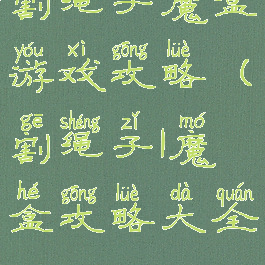 割绳子魔盒
yóu xì gōng lüè
游戏攻略(
gē shéng zǐ mó
割绳子|魔
hé gōng lüè dà quán
盒攻略大全